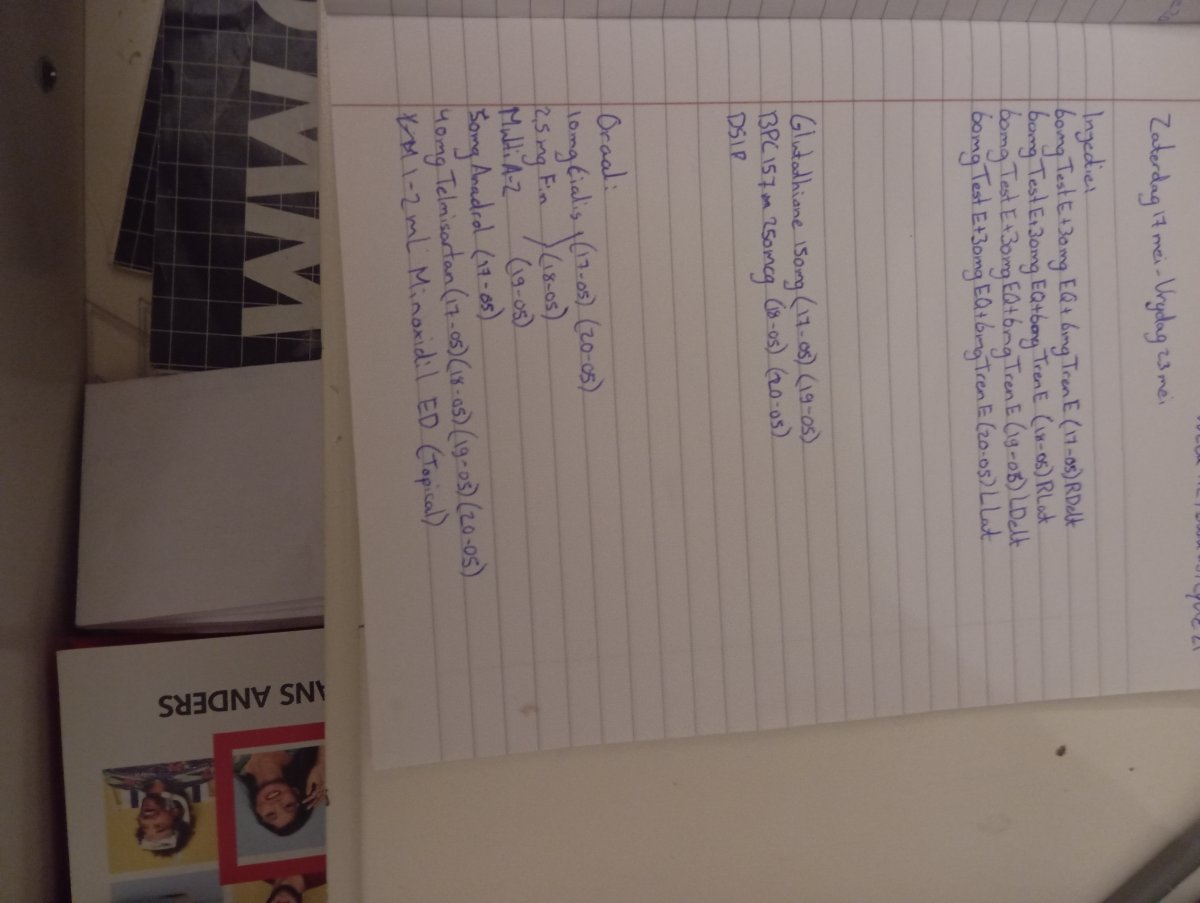 Zaterdag 17 mei - Vrydag 23 mei
Injecties
60mg Test E + 30mg EQ + 6mg Tren E (17-05) R Delt
60mg Test E + 30mg EQ + 6mg Tren E (18-05) R Lat
60mg Test E + 30mg EQ + 6mg Tren E (19-05) L Delt
60mg Test E + 30mg EQ + 6mg Tren E (20-05) L Lat
Glutathione 150mg (17-05) (19-05)
BPC157 250mcg (18-05) (20-05)
DSIP
Oraal:
10mg Cialis (17-05) (20-05)
2,5mg Fin (18-05)
Multi A-Z (19-05)
50mg Anadrol (17-05)
40mg Telmisartan (17-05) (18-05) (19-05) (20-05)
1-2 mL Minoxidil ED (Topical)
HANS ANDERS